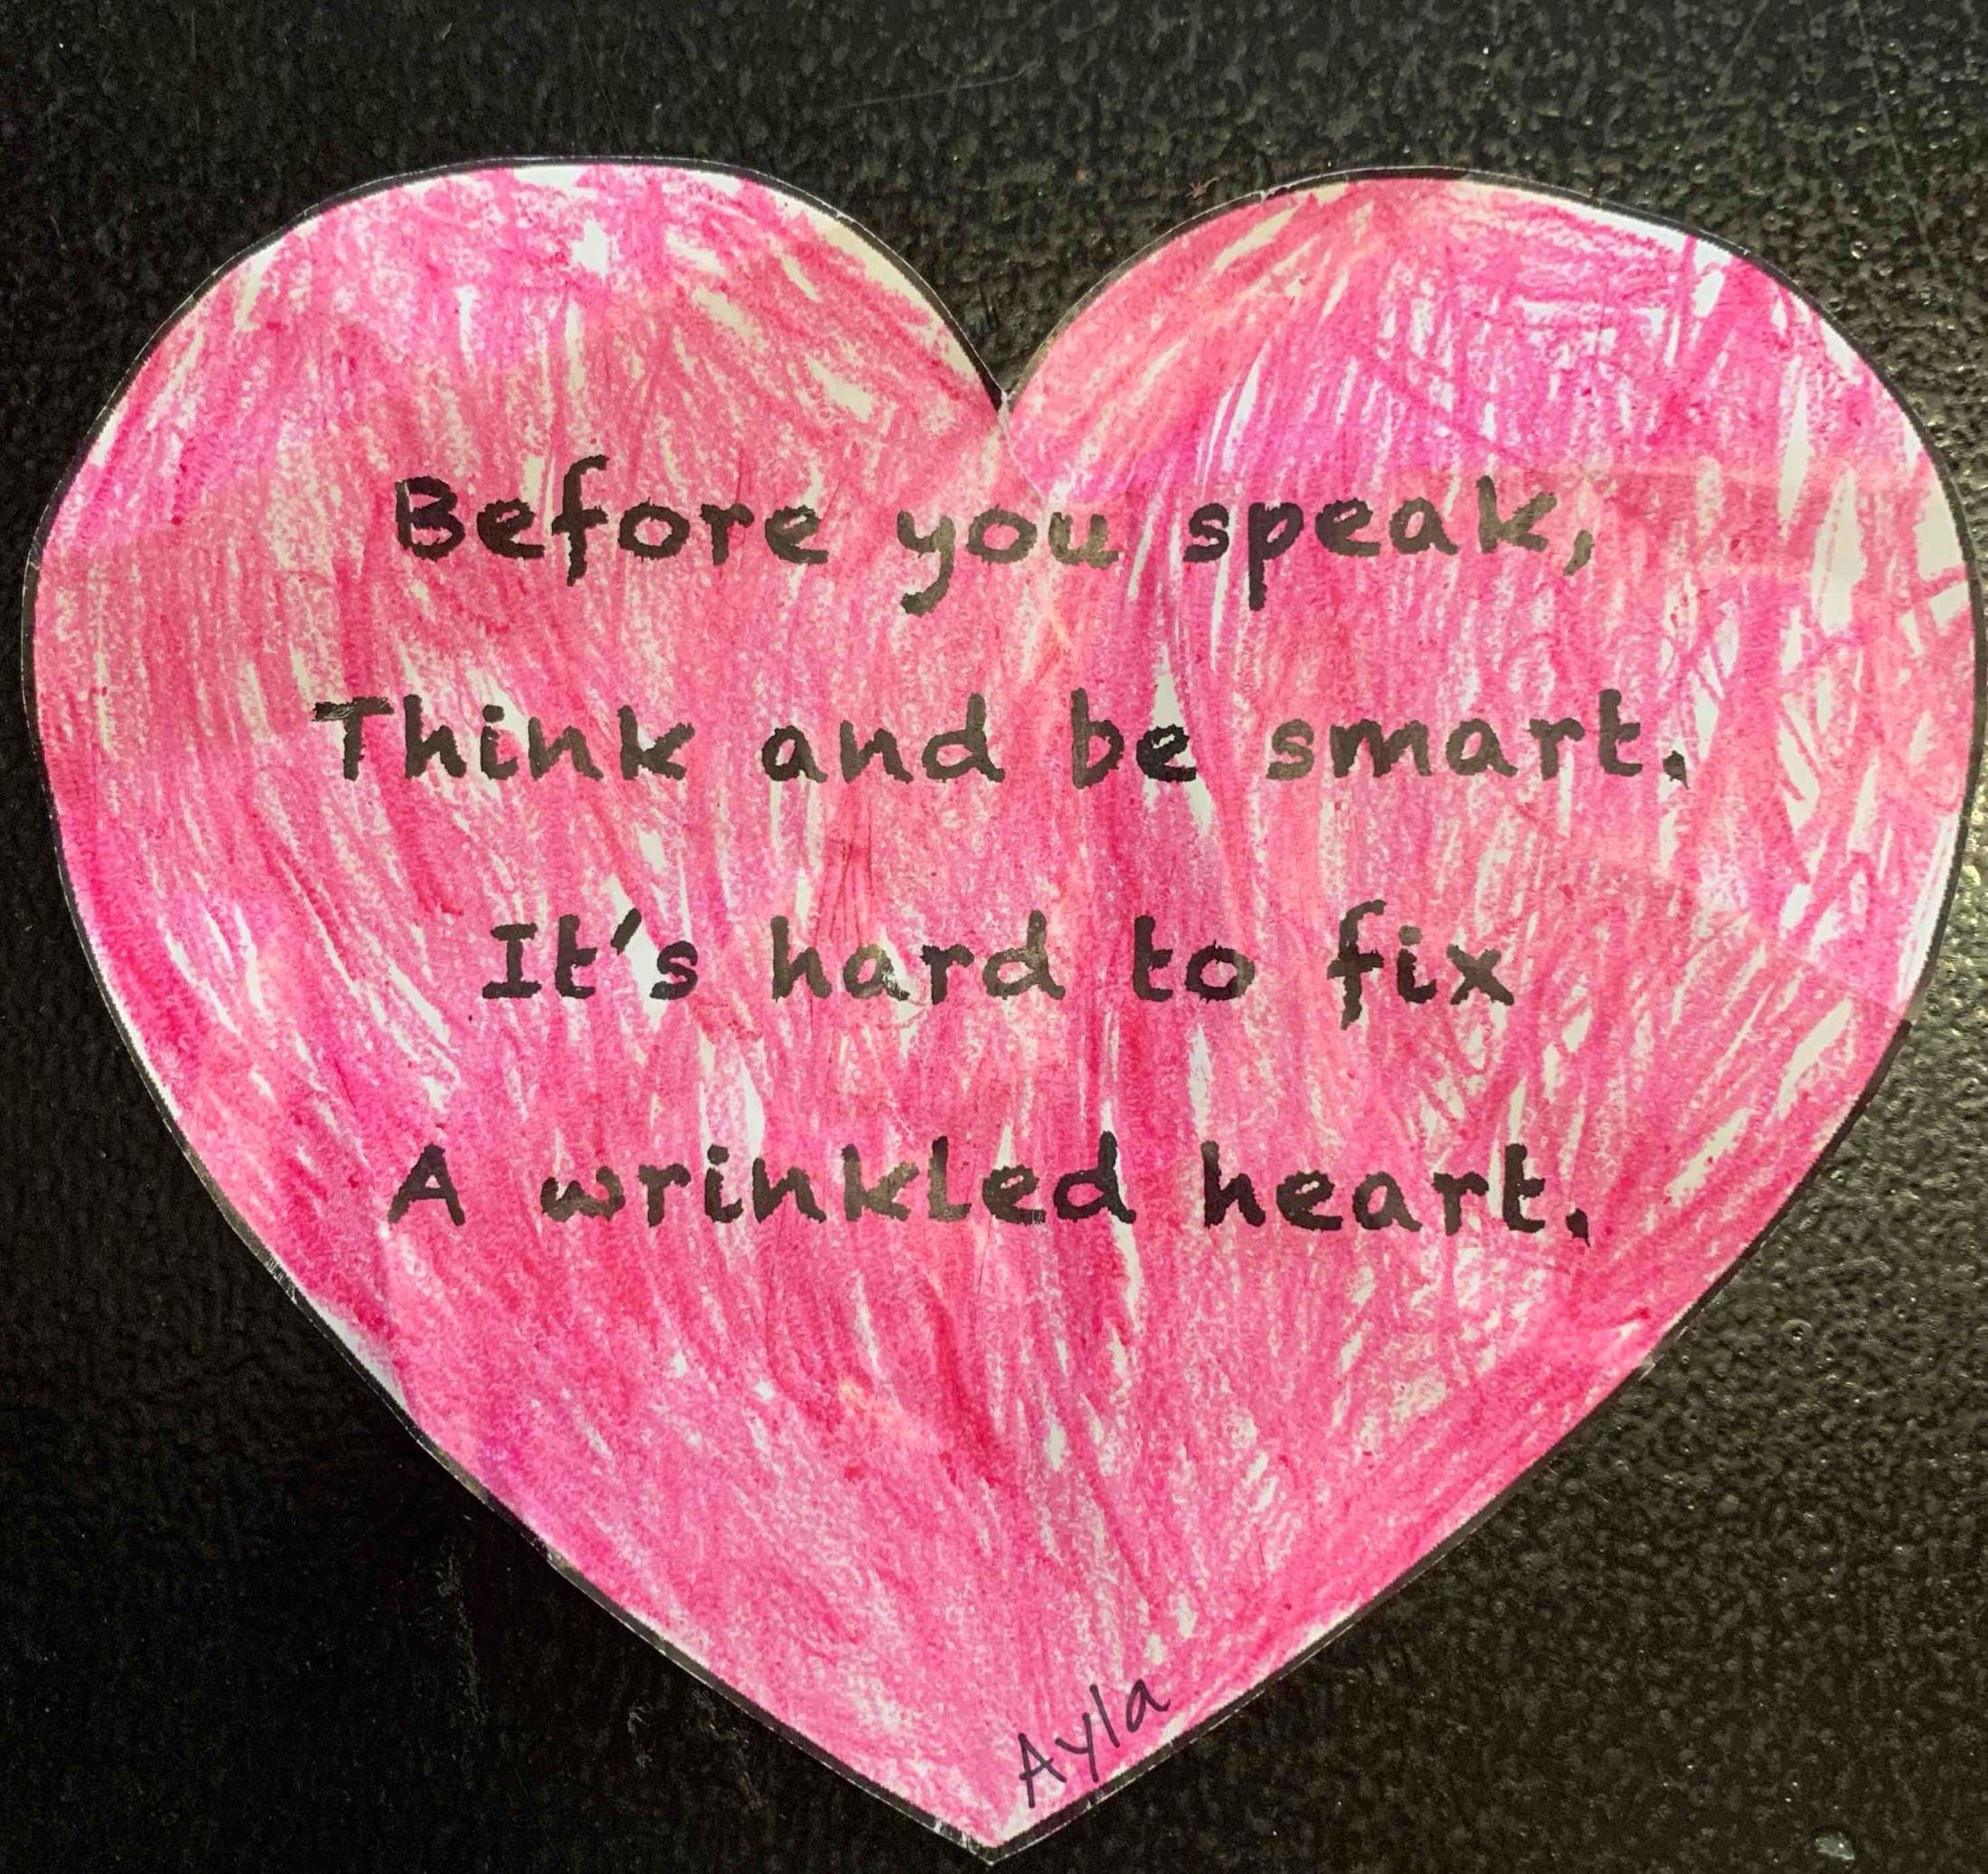 Before you speak,
Think and be smart.
It's hard to fix
A wrinkled heart.
Ayla